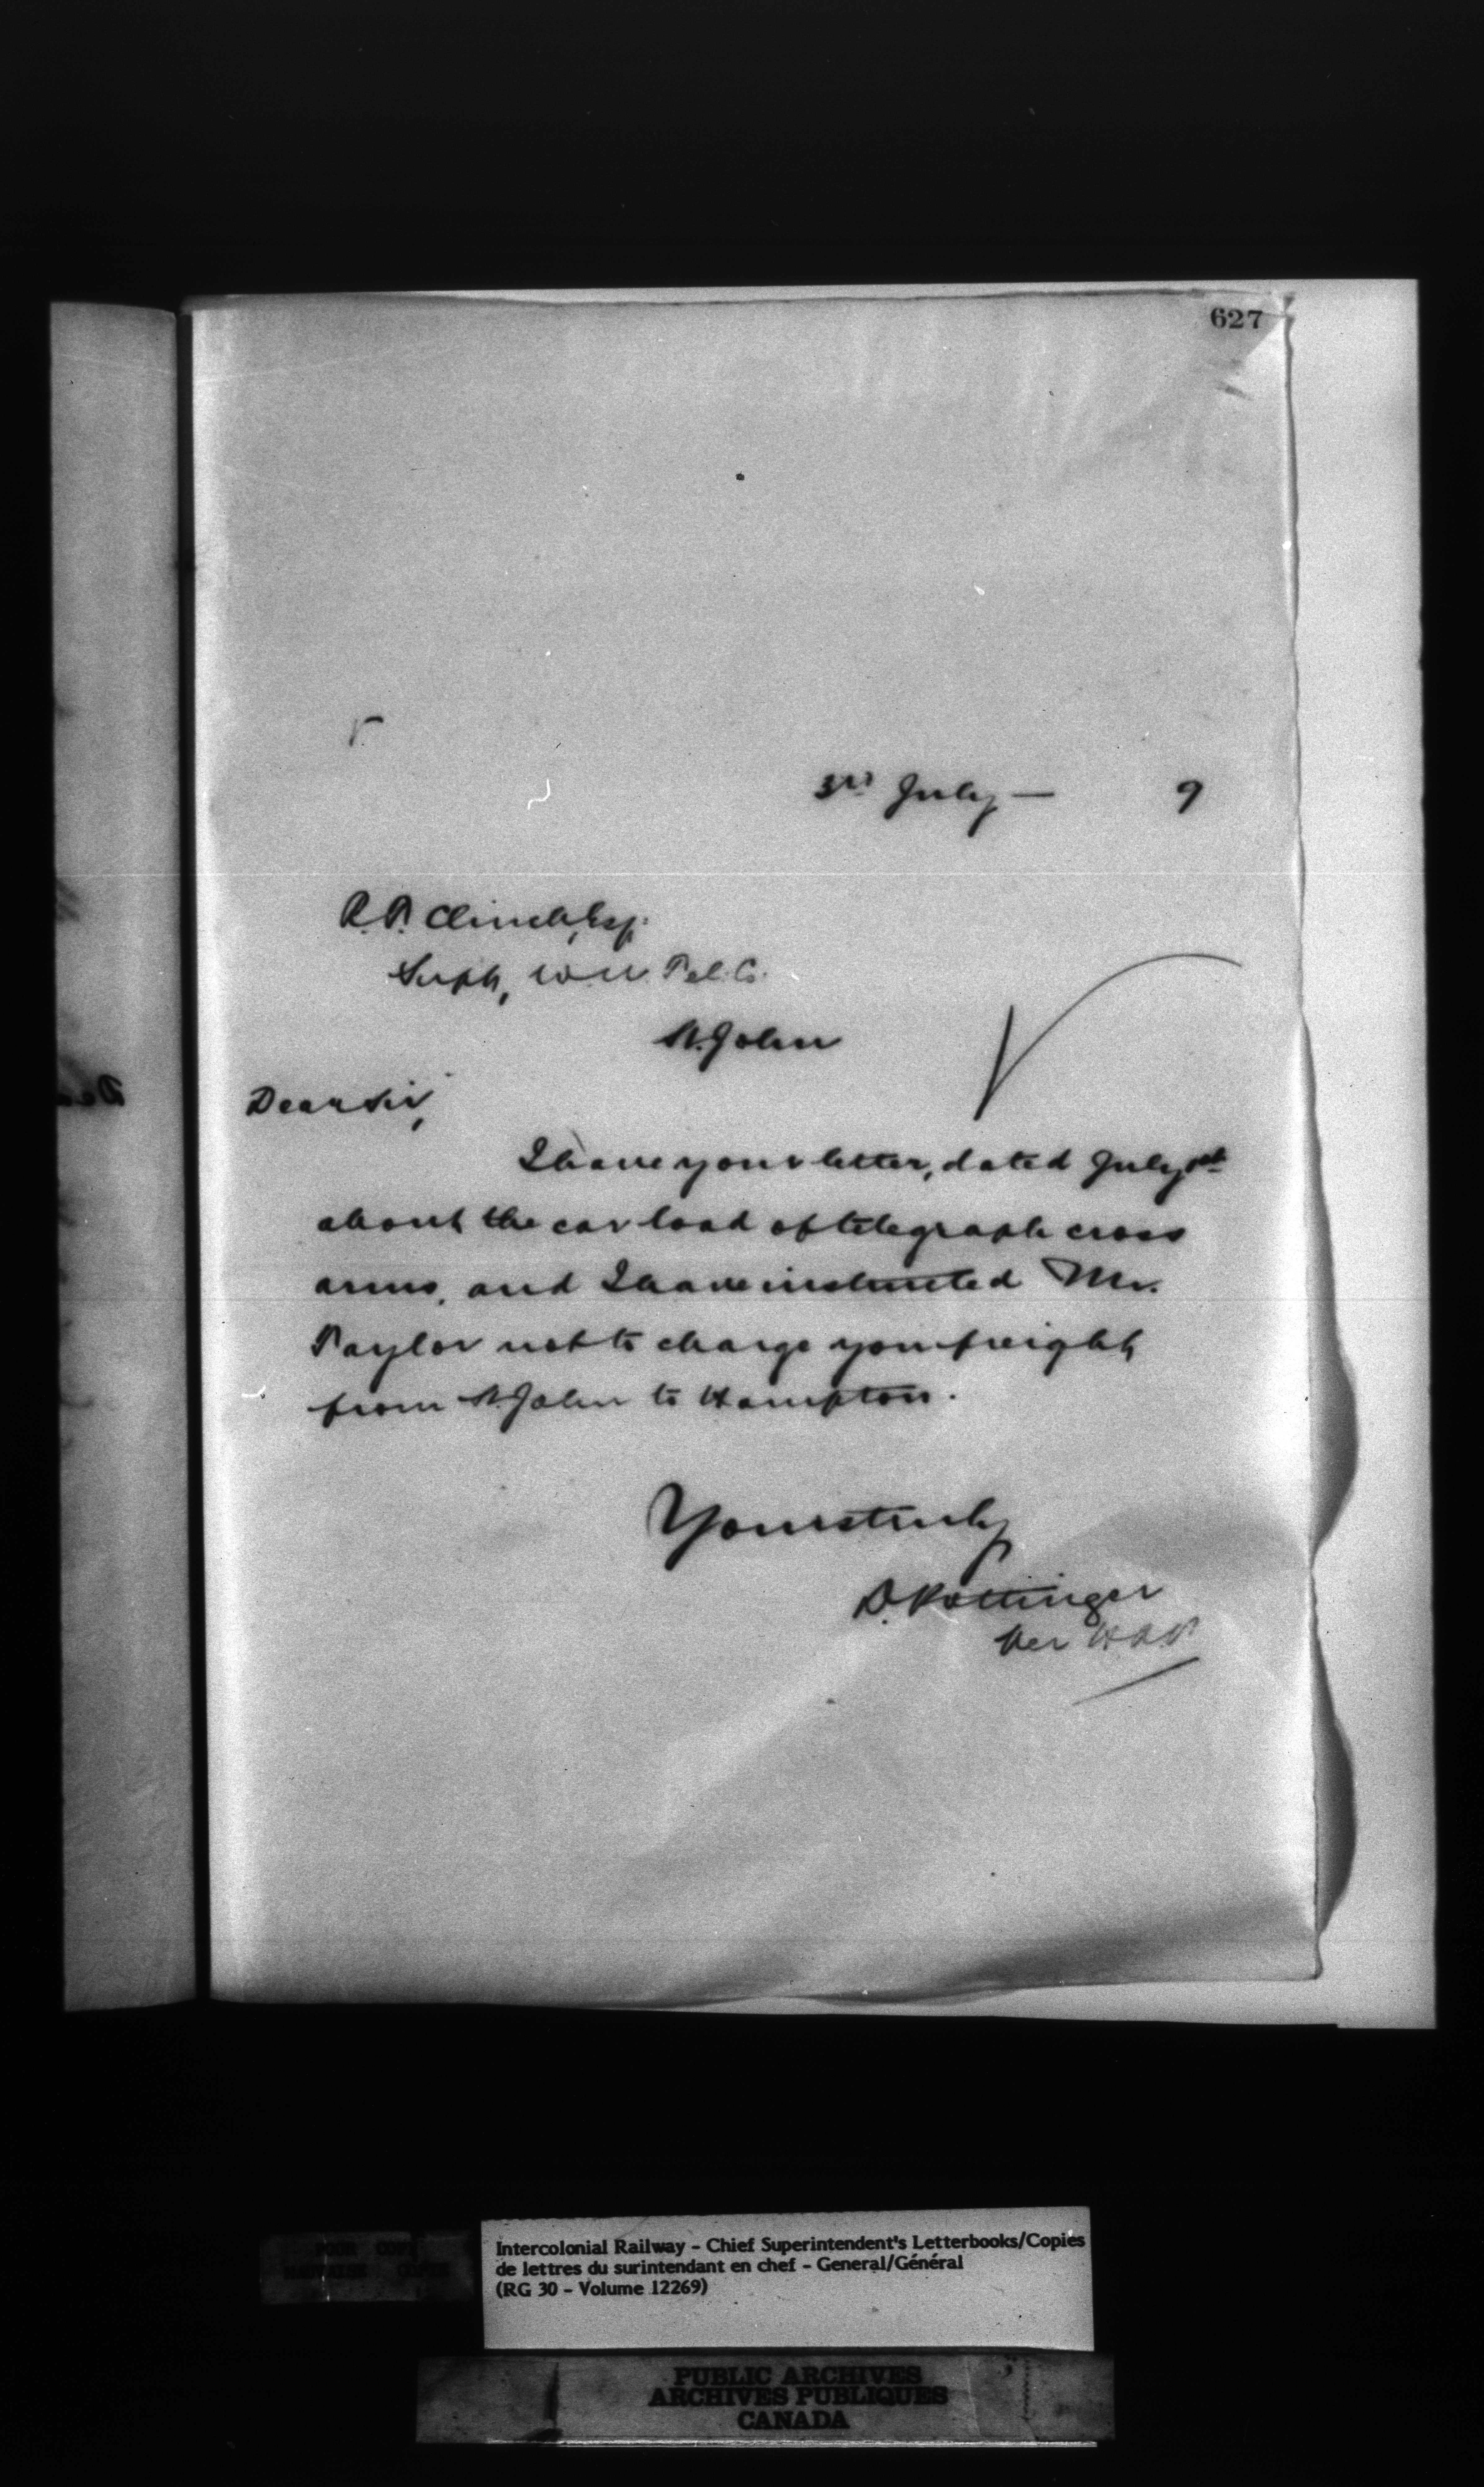 627
3rd July — 9
R.P. Clinch, Esq.
Supt, W.U. Tel. Co.
St. John
Dear Sir,
I have your letter, dated July 1st
about the car load of telegraph cross
arms, and I have instructed Mr.
Taylor not to charge you freight
from St. John to Hampton.
Yours truly
D. Pottinger
Per
Intercolonial Railway - Chief Superintendent's Letterbooks/Copies
de lettres du surintendant en chef - General/Général
(RG 30 - Volume 12269)
POOR COPY
MAUVAISE COPIE
PUBLIC ARCHIVES
ARCHIVES PUBLIQUES
CANADA